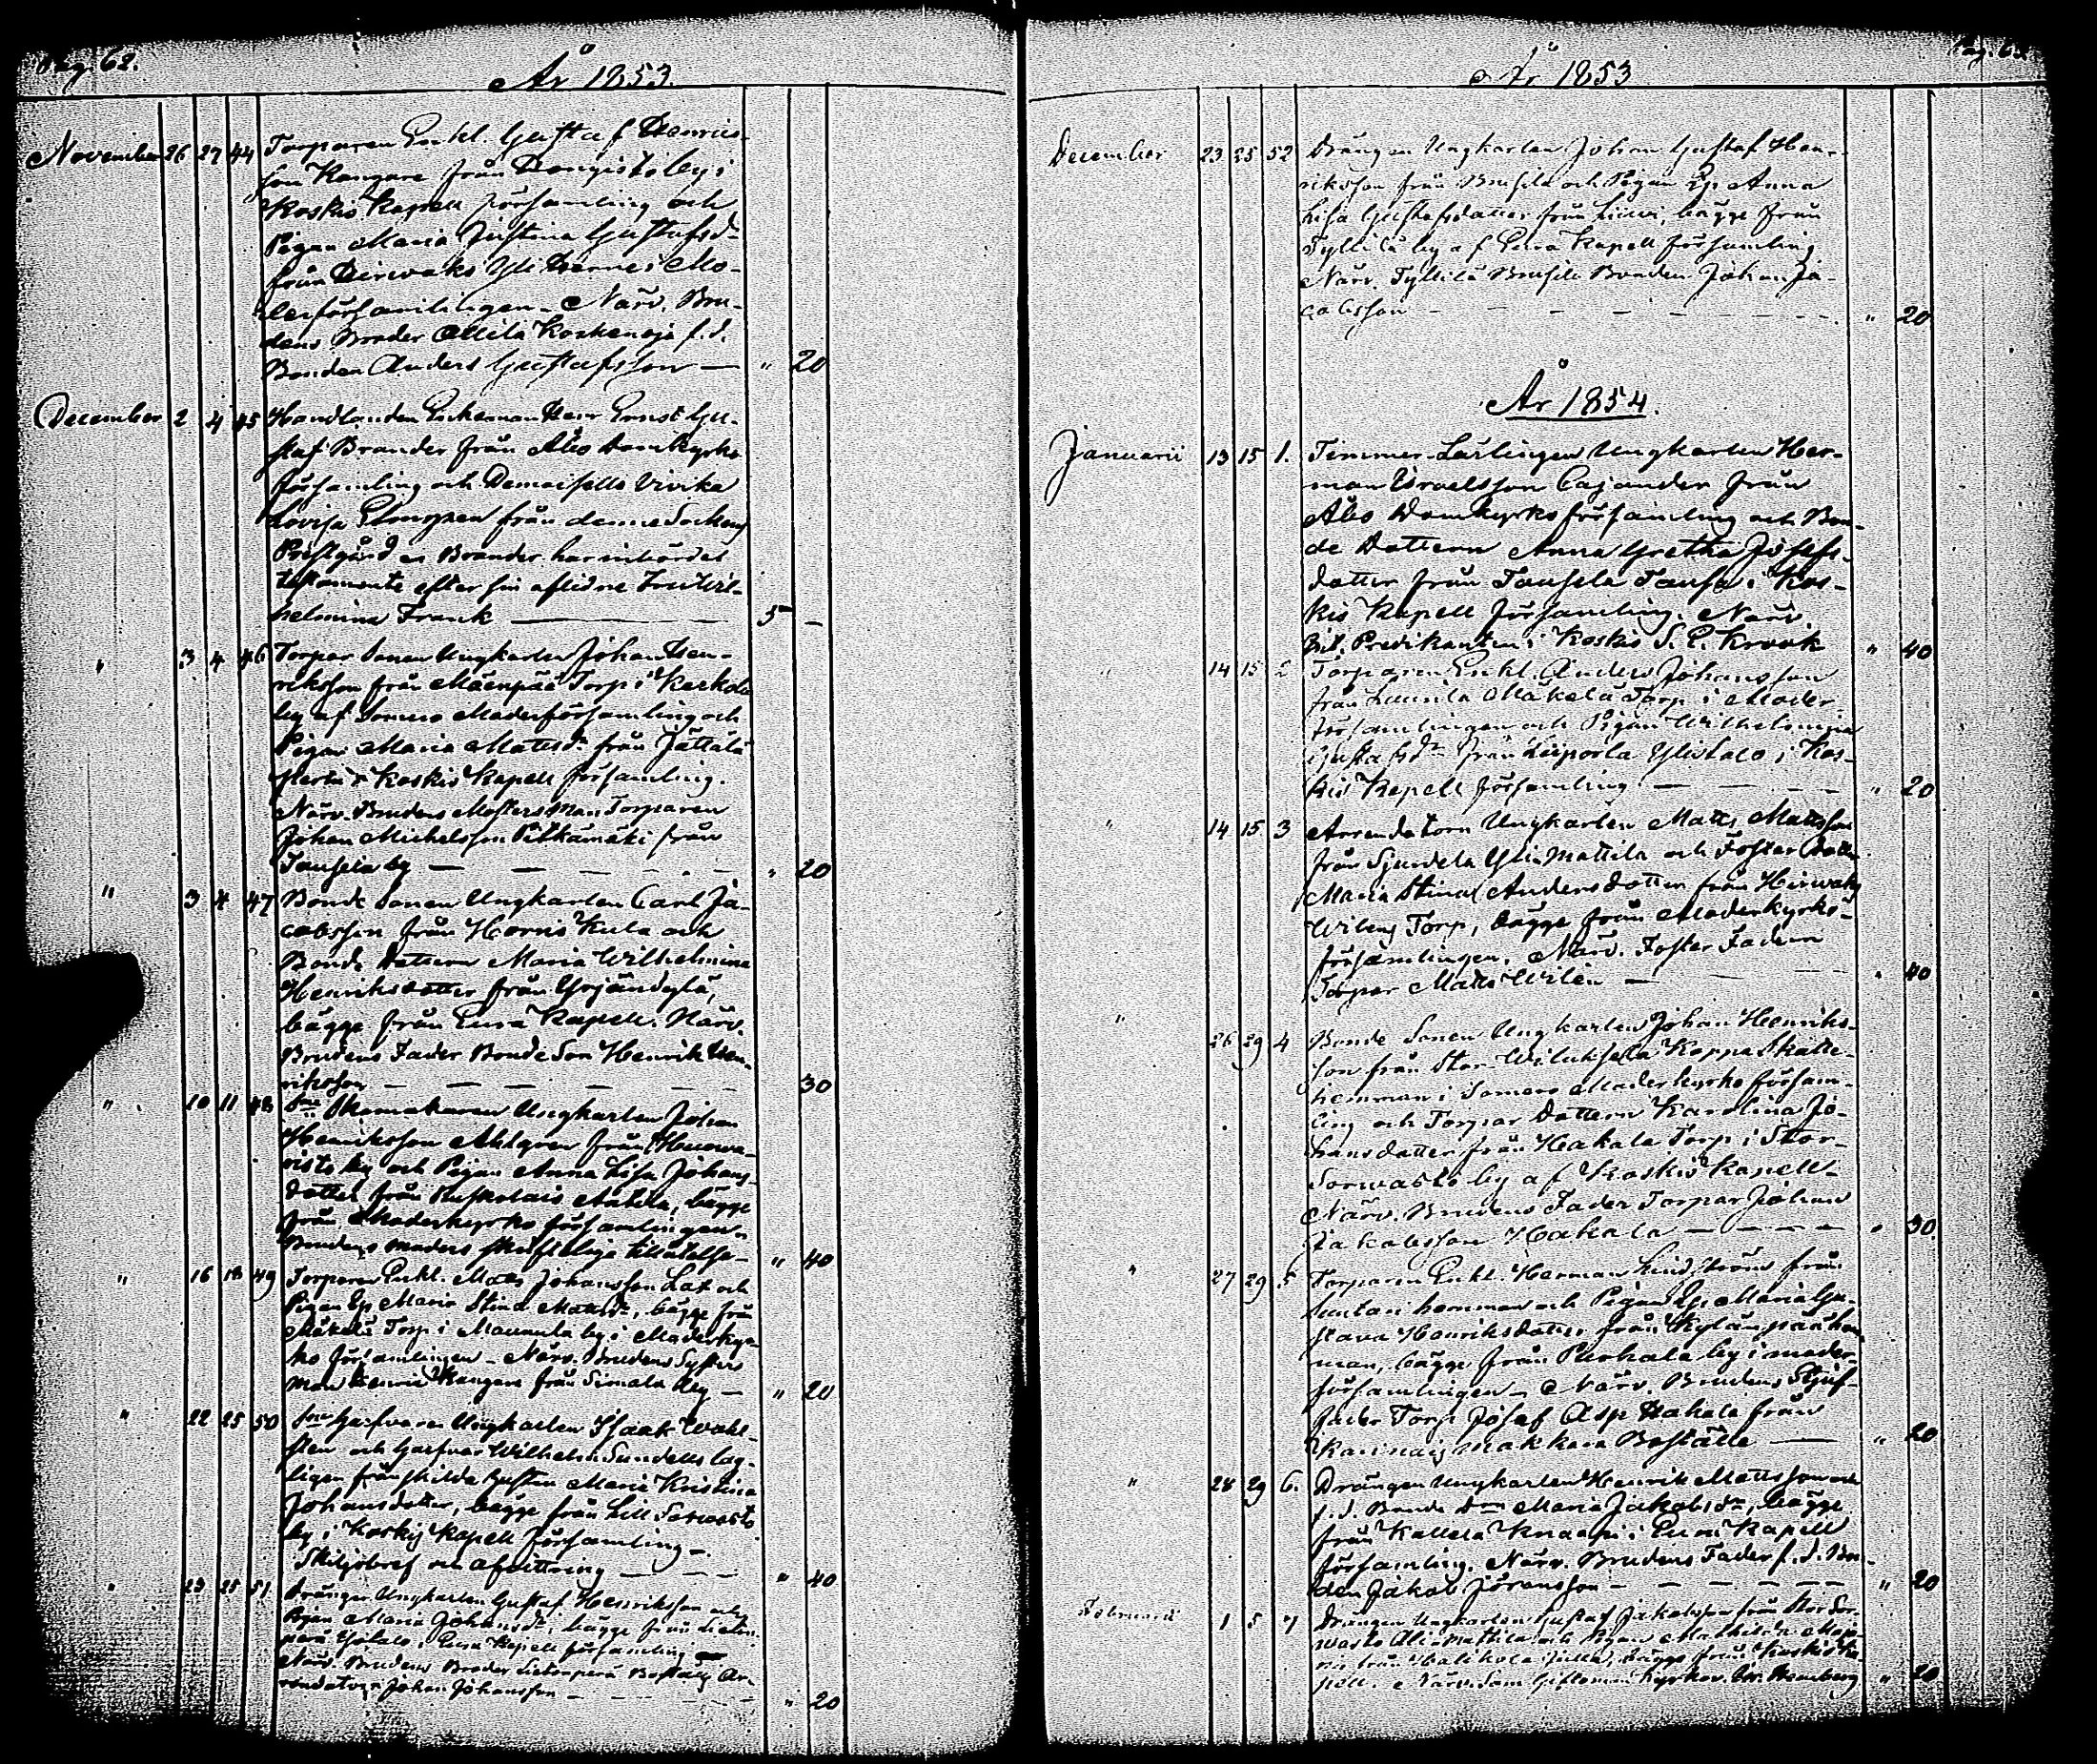 Pag. 62.
År 1853.
November 26 27 44 Torparen Enkl. Gustaf Henrics-
son Kangare från Hongisto by i
Koskis Kapell församling och
Pigan Maria Justina Gustafsd:
från Hirvaks Yli i Mo-
derförsamlingen. Närv. Bru-
dens Broder Koskenoja f.d.
Bonden Anders Gustafsson — " 20
December 2 4 45 Handlanden Enkeman Herr Ernst Gu-
staf Brander från Åbo Domkyrko
församling och Demoiselle Vivika
Lovisa från denne Sockens
Prestgård. Brander har inbördes
testamente efter sin aflidne Fru Wil-
helmina Frank — 5 —
" 3 4 46 Torpar Sonen Ungkarlen Johan Hen-
riksson från Mäenpää Torp i Kerkola
by af Somero Moderförsamling och
Pigan Maria Mattsdr från Jättälä
i Koskis Kapell församling.
Närv. Brudens Mosters Man Torparen
Johan Michelsson Pitkämäki från
Tausela by — " 20
" 3 4 47 Bonde Sonen Ungkarlen Carl Ja-
cobsson från Hornis Kula och
Bonde Dottern Maria Wilhelmina
Henriksdotter från Yrjändylä,
bägge från Eura Kapell. Närv.
Brudens Fader Bonde Son Henrik Hen-
riksson — 30
" 10 11 48 Skomakaren Ungkarlen Johan
Henriksson Ahlgren från
by och Pigan Anna Lisa Johans-
dotter från Ruskolais Anttila, bägge
från Moderkyrko församlingen.
Brudens moders skriftelige tillåtelse — " 40
" 16 18 49 Torparen Enkl. Matts Johansson Lax och
Pigan Eg. Maria Stina Mattsdr, bägge från
Mäkelä Torp i Maunula by i Moderkyr-
ko församlingen. Närv. Brudens Systers
man Henric Kangare från Simala by — " 20
" 22 25 50 Ungkarlen Isaak Wahl-
sten och Wilhelm Sundells lag-
ligen frånskilda hustru Maria Kristina
Johansdotter, bägge från Lill Sorvasto
by i Koskis Kapell församling.
Skiljobref och afvittring — " 40
" 23 25 51 Drängen Ungkarlen Gustaf Henriksson och
Pigan Maria Johansdr, bägge från
Ylitalo i Eura Kapell församling —
Närv. Brudens Broder Boställs Ar-
rendatorn Johan Johansson — " 20
År 1853
December 23 25 52 Drängen Ungkarlen Johan Gustaf Hen-
riksson från Brusila och Pigan Eg. Anna
Lisa Gustafsdotter från Liuvi, bägge från
Tyllilä by af Eura Kapell församling
Närv. Tyllilä Brusila Bonden Johan Ja-
cobsson — " 20
År 1854.
Januarii 13 15 1. Timmer-Lärlingen Ungkarlen Her-
man Israelsson Cajander från
Åbo Domkyrko församling och Bon-
de Dottern Anna Gretha Josefs-
dotter från Tausela Tausa i Kos-
kis Kapell församling. Närv.
Bit. Predikanten i Koskis S. E. Krook " 40
" 14 15 2 Torparen Enkl. Anders Johansson
från Launila Mäkelä Torp i Moder-
församlingen och Pigan Wilhelmina
Gustafsdr från Liiporla Ylistalo i Kos-
kis Kapell församling — " 20
" 14 15 3 Arrendatorn Ungkarlen Matts Mattsson
från Sjundela Yli-Mattila och Foster Dottern
Maria Stina Andersdotter från Hirvaks
Wilens Torp, bägge från Moderkyrko-
församlingen. Närv. Foster Fadern
Torpar Matts Wilen — " 40
" 26 29 4 Bonde Sonen Ungkarlen Johan Henriks-
son från Stor-Wiluksela Koppa Skatte-
hemman i Somero Moderkyrko försam-
ling och Torpar Dottern Karolina Jo-
hansdotter från Hakala Torp i Stor-
Sorvasto by af Koskis Kapell-
Närv. Brudens Fader Torpar Johan
Jakobsson Hakala — " 30.
" 27 29 5 Torparen Enkl. Herman Lindström från
Suutari hemman och Pigan Eg. Maria Gu-
stava Henriksdotter från Kylänpää hem-
man, bägge från Purhala by i moder-
församlingen. Närv. Brudens Styf-
fader Torp. Josef Asp Hakala från
Makkara Boställe — " 20
" 28 29 6. Drängen Ungkarlen Henrik Mattsson och
f. d. Bonde Maria Jakobsdr, bägge
från Kallela Knaapi i Eura Kapell
församling. Närv. Brudens Fader f. d. Bon-
den Jakob Jöransson — " 20
Februarii 1 5 7 Drängen Ungkarlen Gustaf Jakobsson från Stor Sor-
vasto Ali-Mattila och Pigan Mathilda
från Halikola Jussila, bägge från Koskis Ka-
pell. Närv. Som Giftoman Kyrkov. " 20